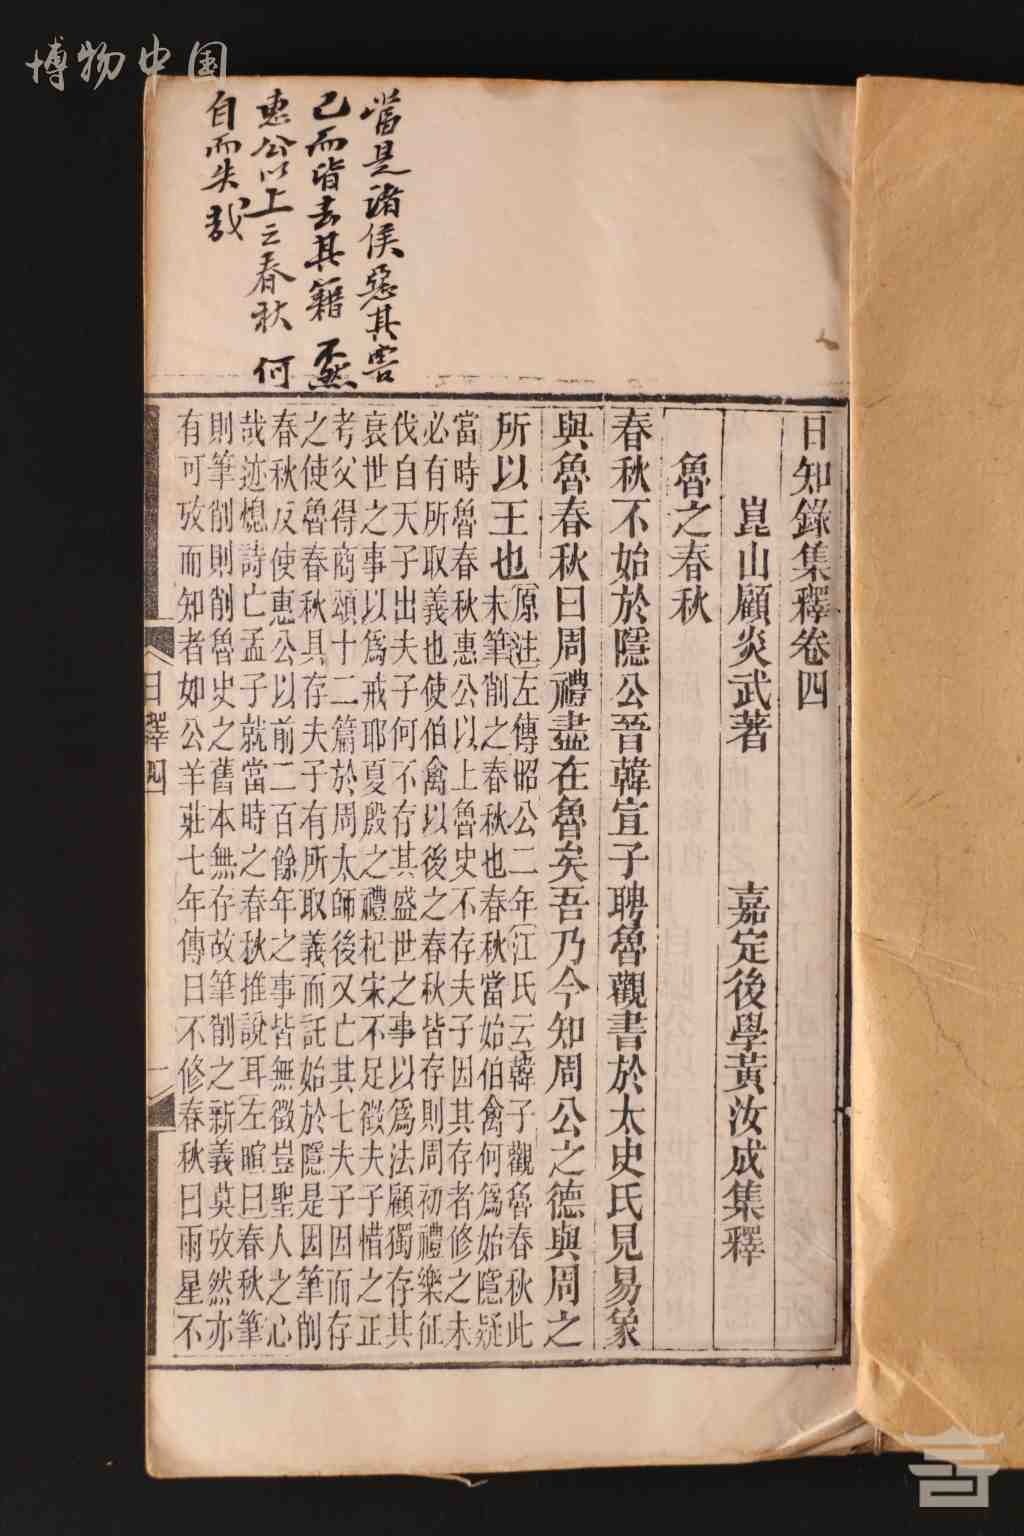 博物中国
當是諸侯惡其害
己而皆去其籍 不然
惠公以上之春秋 何
自而失哉
日知錄集釋卷四
崑山顧炎武著 嘉定後學黃汝成集釋
魯之春秋
春秋不始於隱公晉韓宣子聘魯觀書於太史氏見易象
與魯春秋曰周禮盡在魯矣吾乃今知周公之德與周之
所以王也
原注左傳昭公二年江氏云韓子觀魯春秋此
未筆削之春秋也春秋當始伯禽何爲始隱疑
當時魯春秋惠公以上魯史不存夫子因其存者修之未
必有所取義也使伯禽以後之春秋皆存則周初禮樂征
伐自天子出夫子何不存其盛世之事以爲法顧獨存其
衰世之事以爲戒耶夏殷之禮杞宋不足徵夫子惜之正
考父得商頌十二篇於周太師後又亡其七夫子因而存
之使魯春秋具存夫子有所取義而託始於隱是因筆削
春秋反使惠公以前二百餘年之事皆無徵豈聖人之心
哉迹熄詩亡孟子就當時之春秋推說耳左暄曰春秋筆
則筆削則削魯史之舊本無存故筆削之新義莫攷然亦
有可攷而知者如公羊莊七年傳曰不修春秋曰雨星不
日釋四
一